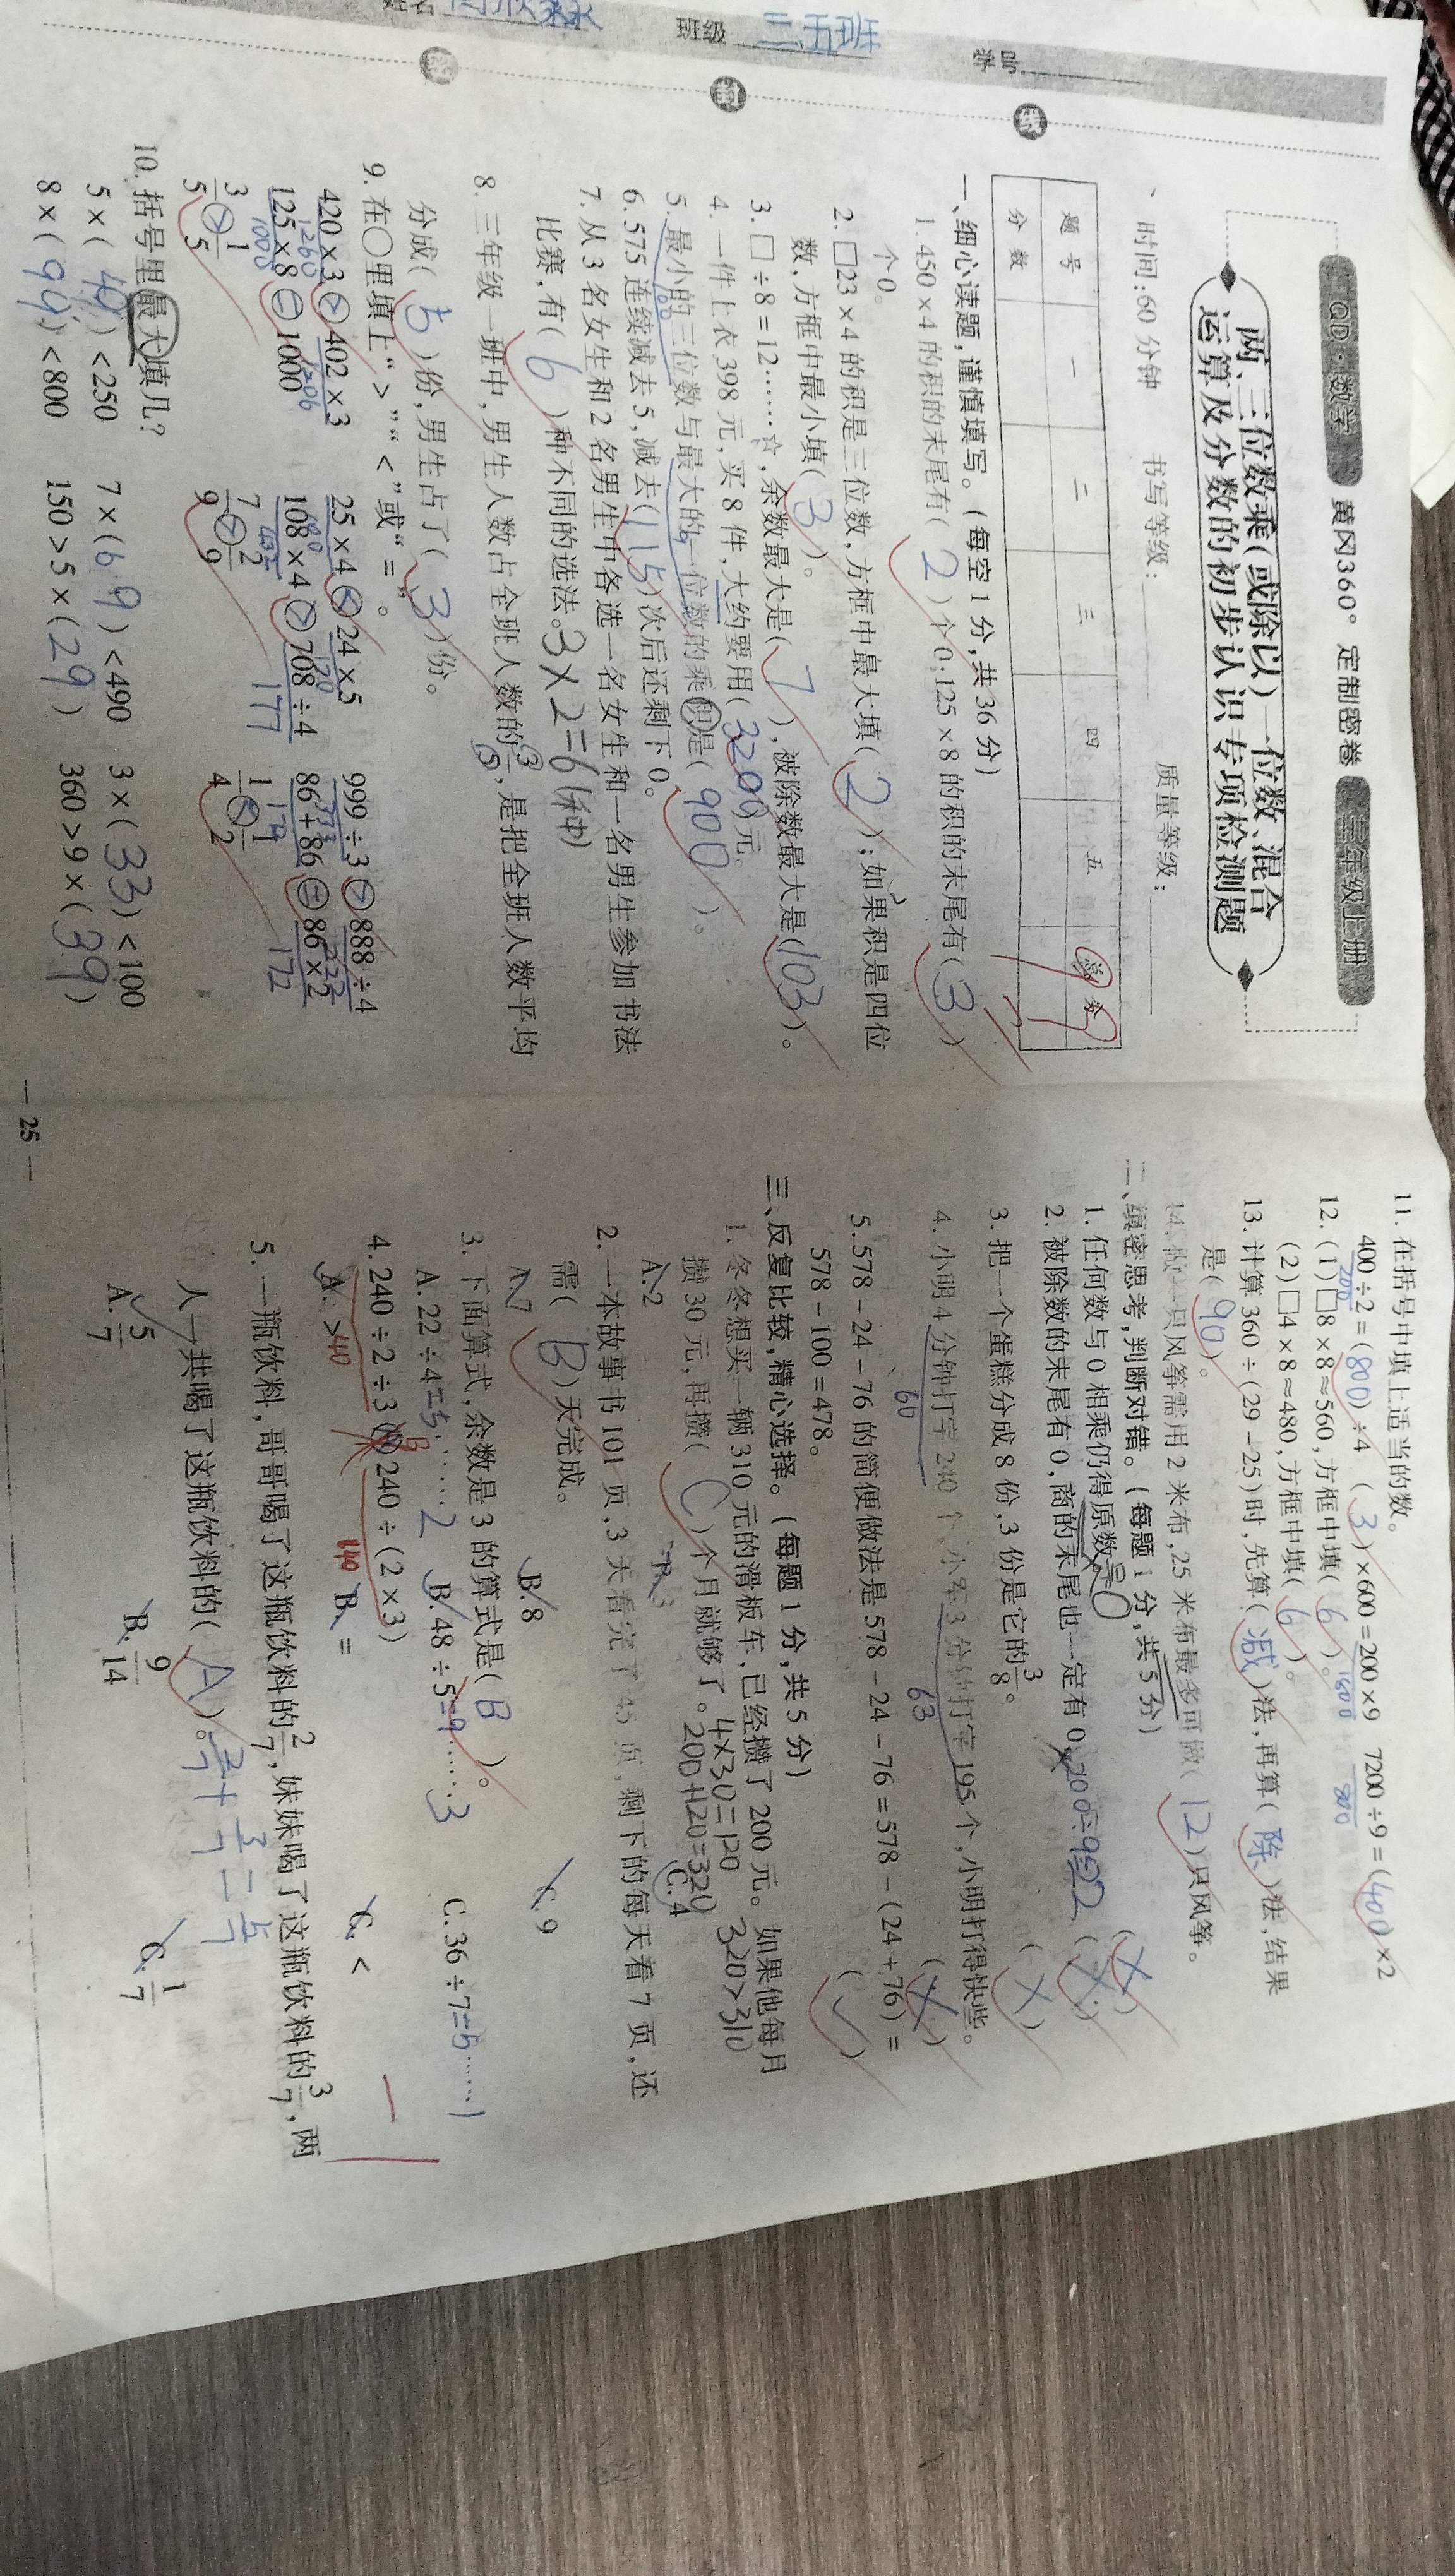 班级 三五班
QD·数学 黄冈360°定制密卷 三年级上册
两、三位数乘(或除以)一位数、混合
运算及分数的初步认识专项检测题
时间:60分钟 书写等级: 质量等级:
题号 一 二 三 四 五 总分
分数
一、细心读题,谨慎填写。(每空1分,共36分)
1. 450×4的积的末尾有(2)个0;125×8的积的末尾有(3)
个0。
2. □23×4的积是三位数,方框中最大填(2);如果积是四位
数,方框中最小填(3)。
3. □÷8=12……☆,余数最大是(7),被除数最大是(103)。
4. 一件上衣398元,买8件,大约要用(3200)元。
5. 最小的三位数与最大的一位数的乘积是(900)。
6. 575连续减去5,减去(115)次后还剩下0。
7. 从3名女生和2名男生中各选一名女生和一名男生参加书法
比赛,有(6)种不同的选法。3×2=6(种)
8. 三年级一班中,男生人数占全班人数的3/5,是把全班人数平均
分成(5)份,男生占了(3)份。
9. 在○里填上“>”“<”或“=”。
420×3>402×3 25×4<24×5 999÷3>888÷4
1260 1206 120 333 222
125×8=1000 108×4>708÷4 86+86=86×2
1000 432 177 172 172
3/5>1/5 7/9>2/9 1/4<1/2
10. 括号里最大填几?
5×( )<250 7×(69)<490 3×(33)<100
8×(99)<800 150>5×(29) 360>9×(39)
— 25 —
11. 在括号中填上适当的数。
400÷2=(800)÷4 (3)×600=200×9 7200÷9=(400)×2
200 1800 800
12. (1)□8×8≈560,方框中填(6)。
(2)□4×8≈480,方框中填(6)。
13. 计算360÷(29-25)时,先算(减)法,再算(除)法,结果
是(90)。
14. 做一只风筝需用2米布,25米布最多可做(12)只风筝。
二、缜密思考,判断对错。(每题1分,共5分)
1. 任何数与0相乘仍得原数。 0 (×)
2. 被除数的末尾有0,商的末尾也一定有0。 (×)
3. 把一个蛋糕分成8份,3份是它的3/8。 (×)
4. 小明4分钟打字240个,小军3分钟打字195个,小明打得快些。
60 63 (×)
5. 578-24-76的简便做法是578-24-76=578-(24+76)=
578-100=478。 (√)
三、反复比较,精心选择。(每题1分,共5分)
1. 冬冬想买一辆310元的滑板车,已经攒了200元。如果他每月
攒30元,再攒(C)个月就够了。 4×30=120 200+120=320 320>310
A. 2 B. 3 C. 4
2. 一本故事书101页,3天看完了45页,剩下的每天看7页,还
需(B)天完成。
A. 7 B. 8 C. 9
3. 下面算式,余数是3的算式是(B)。
A. 22÷4=5……2 B. 48÷5=9……3 C. 36÷7=5……1
4. 240÷2÷3(B)240÷(2×3)
40 40
A. > B. = C. <
5. 一瓶饮料,哥哥喝了这瓶饮料的2/7,妹妹喝了这瓶饮料的3/7,两
人一共喝了这瓶饮料的(A)。2/7+3/7=5/7
A. 5/7 B. 9/14 C. 1/7